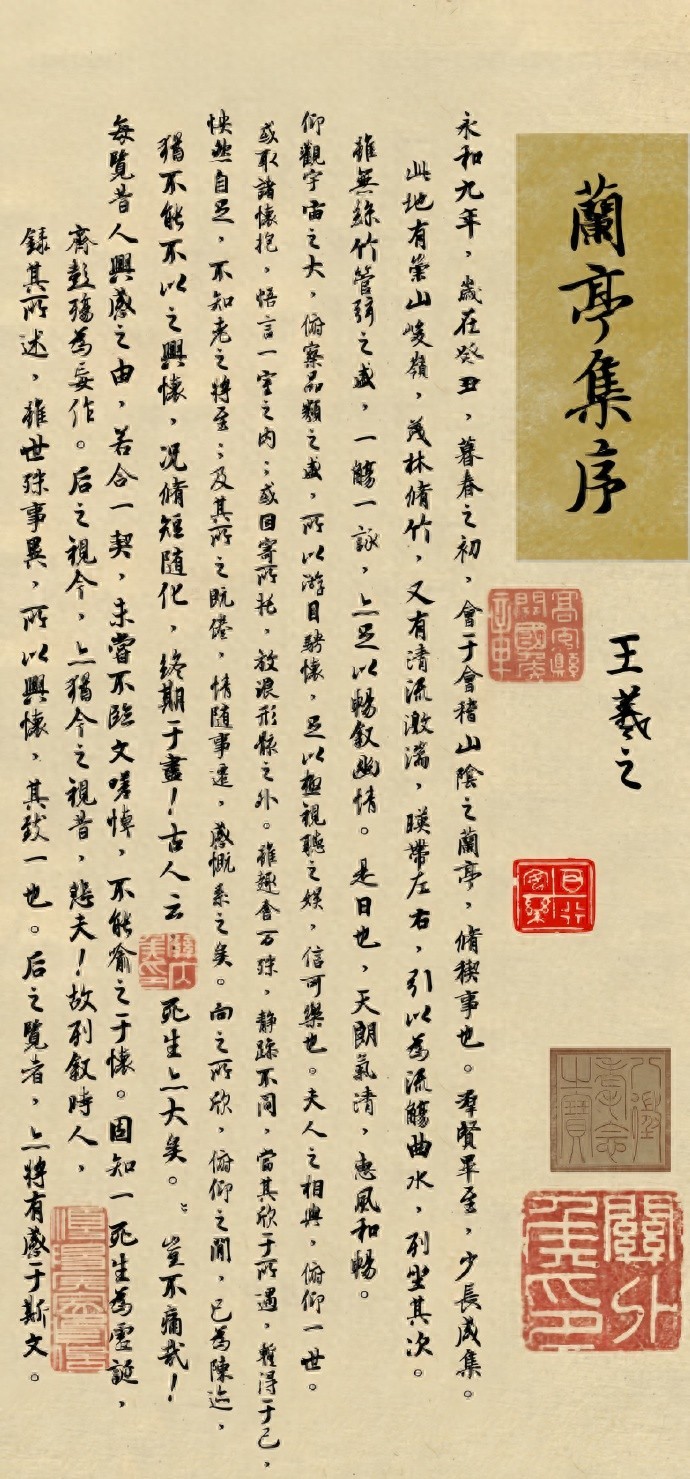 蘭亭集序
王羲之
八徵耄念之寶
關外侯印
永和九年，歲在癸丑，暮春之初，會于會稽山陰之蘭亭，脩稧事也。羣賢畢至，少長咸集。
此地有崇山峻嶺，茂林脩竹，又有清流激湍，暎帶左右，引以為流觴曲水，列坐其次。
雖無絲竹管弦之盛，一觴一詠，亦足以暢敘幽情。是日也，天朗氣清，惠風和暢。
仰觀宇宙之大，俯察品類之盛，所以游目騁懷，足以極視聽之娛，信可樂也。夫人之相與，俯仰一世。
或取諸懷抱，悟言一室之內；或因寄所托，放浪形骸之外。雖趣舍万殊，静躁不同，當其欣于所遇，暫得于己，
怏然自足，不知老之將至；及其所之既倦，情隨事遷，感慨系之矣。向之所欣，俯仰之間，已為陳迹，
猶不能不以之興懷，况脩短隨化，終期于盡！古人云：死生亦大矣。豈不痛哉！
每覽昔人興感之由，若合一契，未嘗不臨文嗟悼，不能喻之于懷。固知一死生為虛誕，
齊彭殤為妄作。后之視今，亦猶今之視昔，悲夫！故列敘時人，
錄其所述，雖世殊事異，所以興懷，其致一也。后之覽者，亦將有感于斯文。